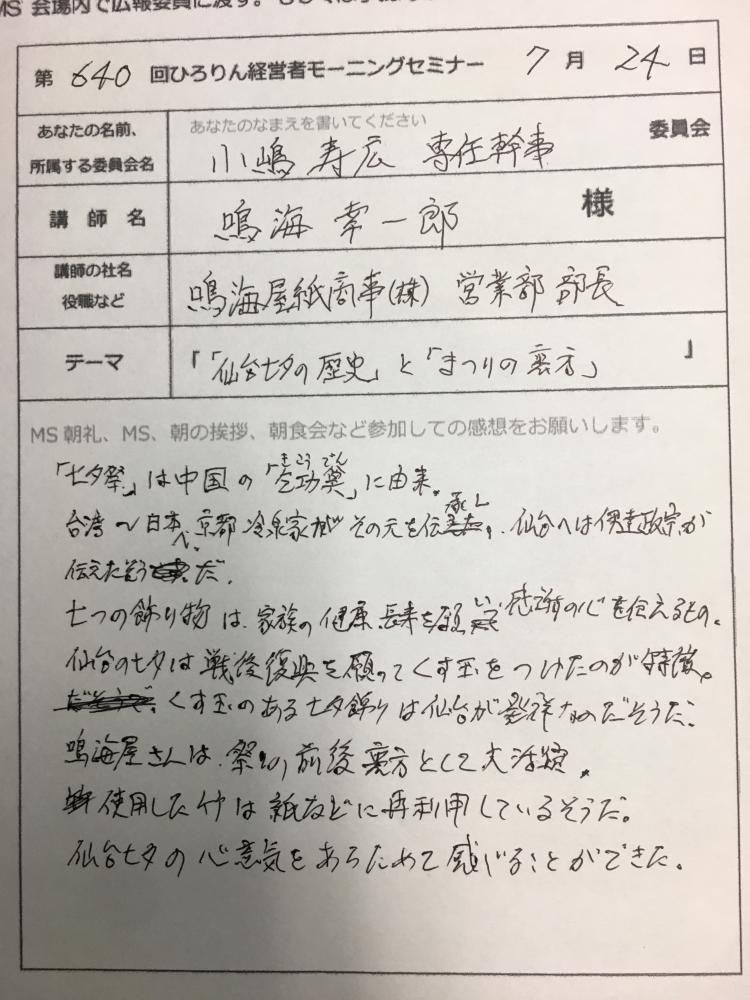 MS 会場内で広報委員に渡す。
第 640 回ひろりん経営者モーニングセミナー 7 月 24 日
あなたの名前、
所属する委員会名
あなたのなまえを書いてください
小嶋 寿広 専任幹事
委員会
講 師 名
鳴海 幸一郎 様
講師の社名
役職など
鳴海屋紙商事(株) 営業部 部長
テーマ
「「仙台七夕の歴史」と「まつりの裏方」 」
MS 朝礼、MS、朝の挨拶、朝食会など参加しての感想をお願いします。
きこうでん
「七夕祭」は中国の「乞功奠」に由来。
台湾〜日本へ、京都冷泉家がその元を伝承し、仙台へは伊達政宗が
伝えたそうだ。
七つの飾り物は、家族の健康、長寿を願いつつ感謝の心を伝えるもの。
仙台の七夕は戦後復興を願ってくす玉をつけたのが特徴。
くす玉のある七夕飾りは仙台が発祥なのだそうだ。
鳴海屋さんは、祭りの前後裏方として大活躍。
使用した竹は紙などに再利用しているそうだ。
仙台七夕の心意気をあらためて感じることができた。